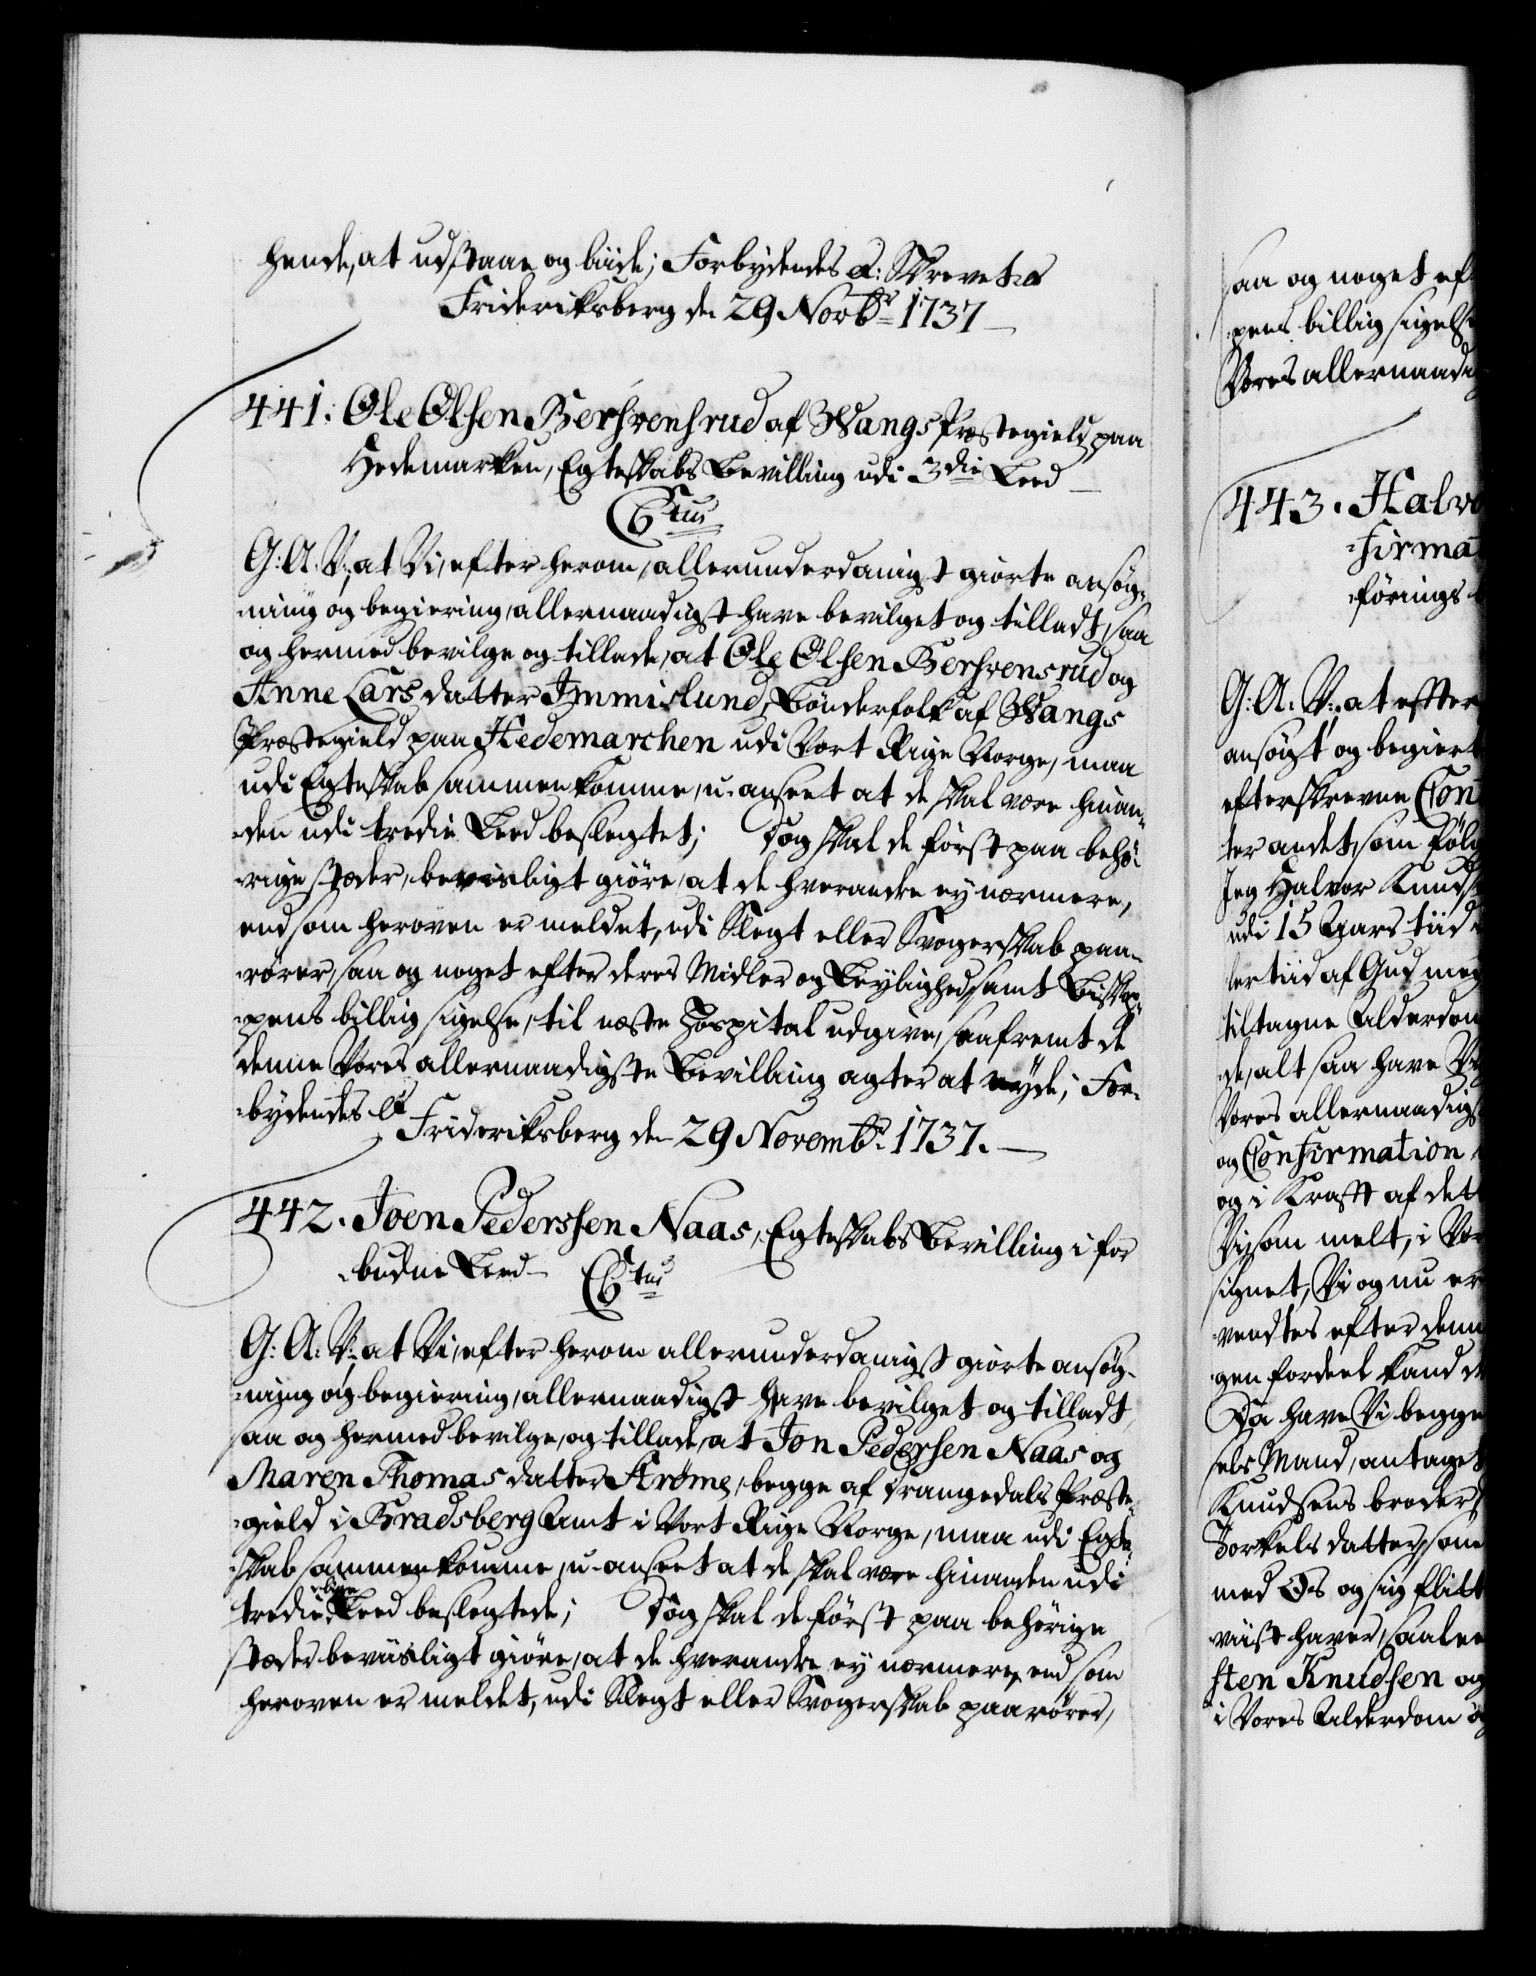 hende, at udstaae og biide; Forbydendes &: Skrevet paa
Frideriksberg den 29 Novbr 1737
441. Ole Olsen Berhvensrud af Wangs Præstegield paa
Hedemarken, Egteskabs Bevilling udi 3die Leed
Ctus
G: A: V:, at Vi, efter herom, allerunderdanigst giorte ansøg-
ning og begiering, allernaadigst have bevilget og tilladt, saa
og hermed bevilge og tillade, at Ole Olsen Berhvensrud og
Anne Lars datter Immislund, Bönderfolk af Wangs
Præstegield paa Hedemarchen udi Vort Rige Norge, maa
udi Egteskab sammenkomme, u-anseet at de skal være hinan-
den udi tredie Leed beslegtet; Dog skal de først paa behø-
rige stæder, bevisligt giøre, at de hverandre ey nærmere,
end som heroven er meldet, udi Slegt eller Svogerskab paa-
rører, saa og noget efter deres Midler og Leylighed, samt Bisko-
pens billig sigelse, til næste Hospital udgive, saafremt de
denne Vores allernaadigste Bevilling agter at nyde; For-
bydendes &
Frideriksberg den 29 Novembr. 1737.
442. Joen Pederssen Naas, Egteskabs Bevilling i for
budne Leed Ctus
G: A: V:, at Vi, efter herom allerunderdanigst giorte ansøg-
ning og begiering, allernaadigst have bevilget og tilladt,
saa og hermed bevilge, og tillade, at Jon Pedersen Naas og
Maren Thomas datter Strøme, begge af Drangedals Præste-
gield i Bradsberg Amt i Vort Rige Norge, maa udi Egte-
skab sammenkomme, u-anseet at de skal være hinanden udi
tredie lige Leed beslegtede; Dog skal de først paa behørige
stæder bevisligt giøre, at de hverandre ey nærmere, end som
heroven er meldet, udi Slegt eller Svogerskab paarører,
saa og noget ef
pens billig sigelse
Vores allernaadig
443. Halvo
firma
förings
G: A: V:, at efter
ansøgt og begiert
efterskrevne Con
ter andet, som følg
Jeg Halvor Knuds
udi 15 Aars tiid
ler tiid af Gud meg
tiltagne Alderdom
de, alt saa have V
Vores allernaadigst
og Confirmation
og i Kraft af det
Vi, som melt, i Vor
signet, Vi og nu er
vendtes efter denn
gen fordeel kand d
Da have Vi begge
sels Mand, antaget
Knudsens broder
Torkels datter, som
med Os og sig flitt
viist haver, saale
sten Knudsen og
i Vores Alderdom o